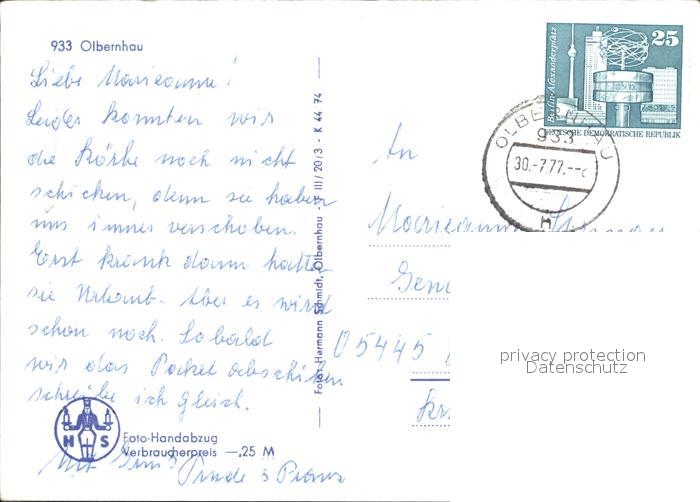 933 Olbernhau
Liebe Marieanne!
Leider konnten wir
die Körbe noch nicht
schicken, denn sie haben
uns immer verschoben.
Erst krank dann hatte
sie Urlaub. Aber es wird
schon noch. Sobald
wir das Packet abschicken
schreibe ich gleich.
Mit Gruß
H S
Foto-Handabzug
Verbraucherpreis —,25 M
Fotos Hermann Schmidt, Olbernhau III/20/3 - K 44 74
Berlin-Alexanderplatz
25
DEUTSCHE DEMOKRATISCHE REPUBLIK
OLBERNHAU
933
30.-7.77.--
n
An
Marieanne
05445
privacy protection
Datenschutz